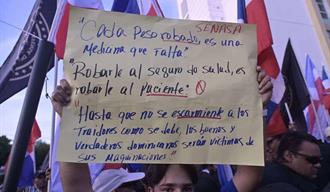 SENASA
"Cada Peso robado, es una
medicina que falta"
"Robarle al seguro de salud, es
robarle al Paciente"
"Hasta que no se escarmiente a los
Traidores como se debe, los buenos y
verdaderos dominicanos serán víctimas de
sus maquinaciones"